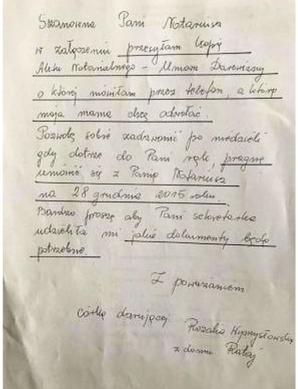 Szanowna Pani Notariusz
w załączeniu przesyłam kopię
Aktu Notarialnego - Umowa Darowizny
o której mówiłam przez telefon, a którą
moja mama chcę odwołać.
Pozwolę sobie zadzwonić po niedzieli
gdy dotrze do Pani rąk, pragnę
umówić się z Panią Notariusz
na 28 grudnia 2015 roku.
Bardzo proszę aby Pani sekretarka
udzieliła mi jakie dokumenty będą
potrzebne.
Z poważaniem
córka darującej Rozalia
z domu Rataj